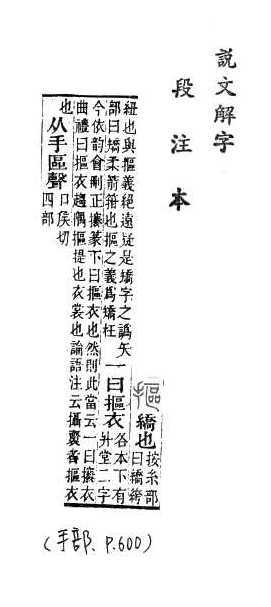 説文解字
段注本
摳
繑也
按糸部
曰繑絝
紐也與摳義絕遠疑是矯字之譌矢
部曰矯柔箭箝也摳之義爲矯枉
一曰摳衣
各本下有
升堂二字
今依韵會刪正攐篆下曰摳衣也然則此當云一曰攐衣
曲禮曰摳衣趨隅摳提也衣裳也論語注云攝齌者摳衣
也
从手區聲
口矦切
四部
(手部、P.600)